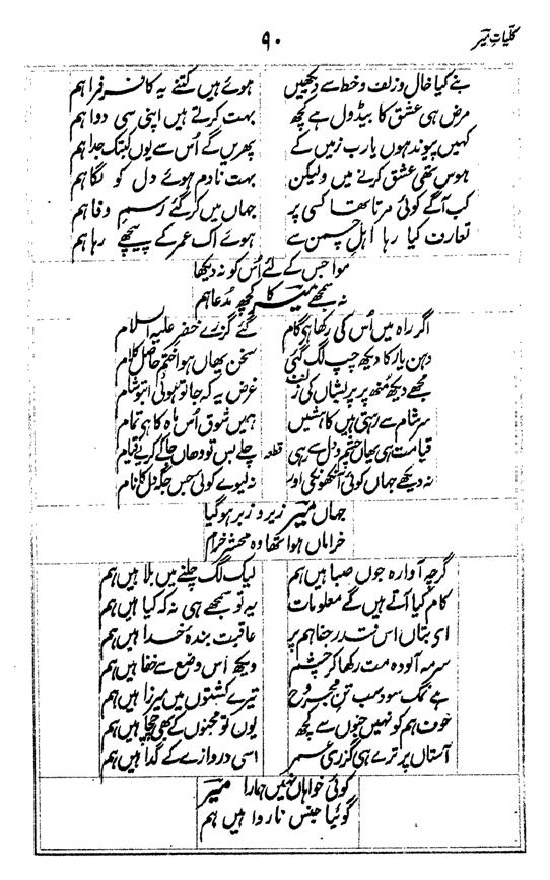 کلیاتِ میر
۹۰
بنے کیا خال و زلف و خط سے دیکھیں ہوئے ہیں کتنے یہ کافر فراہم
مرض ہی عشق کا بیڈول ہے کچھ بہت کرتے ہیں اپنی سی دوا ہم
کہیں پیوند ہوں یارب زمیں کے پھریں گے اُس سے یوں کبتک جدا ہم
ہوس تھی عشق کرنے میں ولیکن بہت نادم ہوئے دل کو لگا ہم
کب آگے کوئی مرتا تھا کسی پر جہاں میں کر گئے رسمِ وفا ہم
تعارف کیا رہا اہلِ چمن سے ہوئے اک عمر کے پیچھے رہا ہم
موا جس کے لئے اُس کو نہ دیکھا
نہ سمجھے میر کا کچھ مُدعا ہم
اگر راہ میں اُس کی رکھا ہی گام گئے گزرے خضر علیہ السلام
دہن یار کا دیکھ چپ لگ گئی سخن یھاں ہوا ختم حاصل کلام
مجھے دیکھ مُنھ پر پریشاں کی زلف غرض یہ کہ جا تو ہوئی اب تو شام
سرِ شام سے رہتی ہیں کاہشیں ہمیں شوق اُس ماہ کا ہی تمام
قیامت ہی یھاں چشم و دل سے رہی قطعہ چلے بس تو وھاں جا کے کریے قیام
نہ دیکھے جہاں کوئی آنکھوں کی اور نہ لیوے کوئی جس جگہ دل کا نام
جہاں میر زیر و زبر ہو گیا
خراماں ہوا تھا وہ محشر خرام
گرچہ آوارہ جوں صبا ہیں ہم لیک لگ چلنے میں بلا ہیں ہم
کام کیا آتے ہیں گے معلومات یہ تو سمجھے ہی نہ کہ کیا ہیں ہم
ای بتاں اس قدر جفا ہم پر عاقبت بندۂ خدا ہیں ہم
سرمہ آلودہ مت رکھا کر چشم دیکھ اس وضع سے خفا ہیں ہم
ہے نمک سود سب تنِ مجروح تیرے کشتوں میں میرزا ہیں ہم
خوف ہم کو نہیں جنوں سے کچھ یوں تو مجنوں کے بھی چچا ہیں ہم
آستاں پر ترے ہی گزری عمر اسی دروازے کے گدا ہیں ہم
کوئی خواہاں نہیں ہمارا میر
گوئیا جنس ناروا ہیں ہم